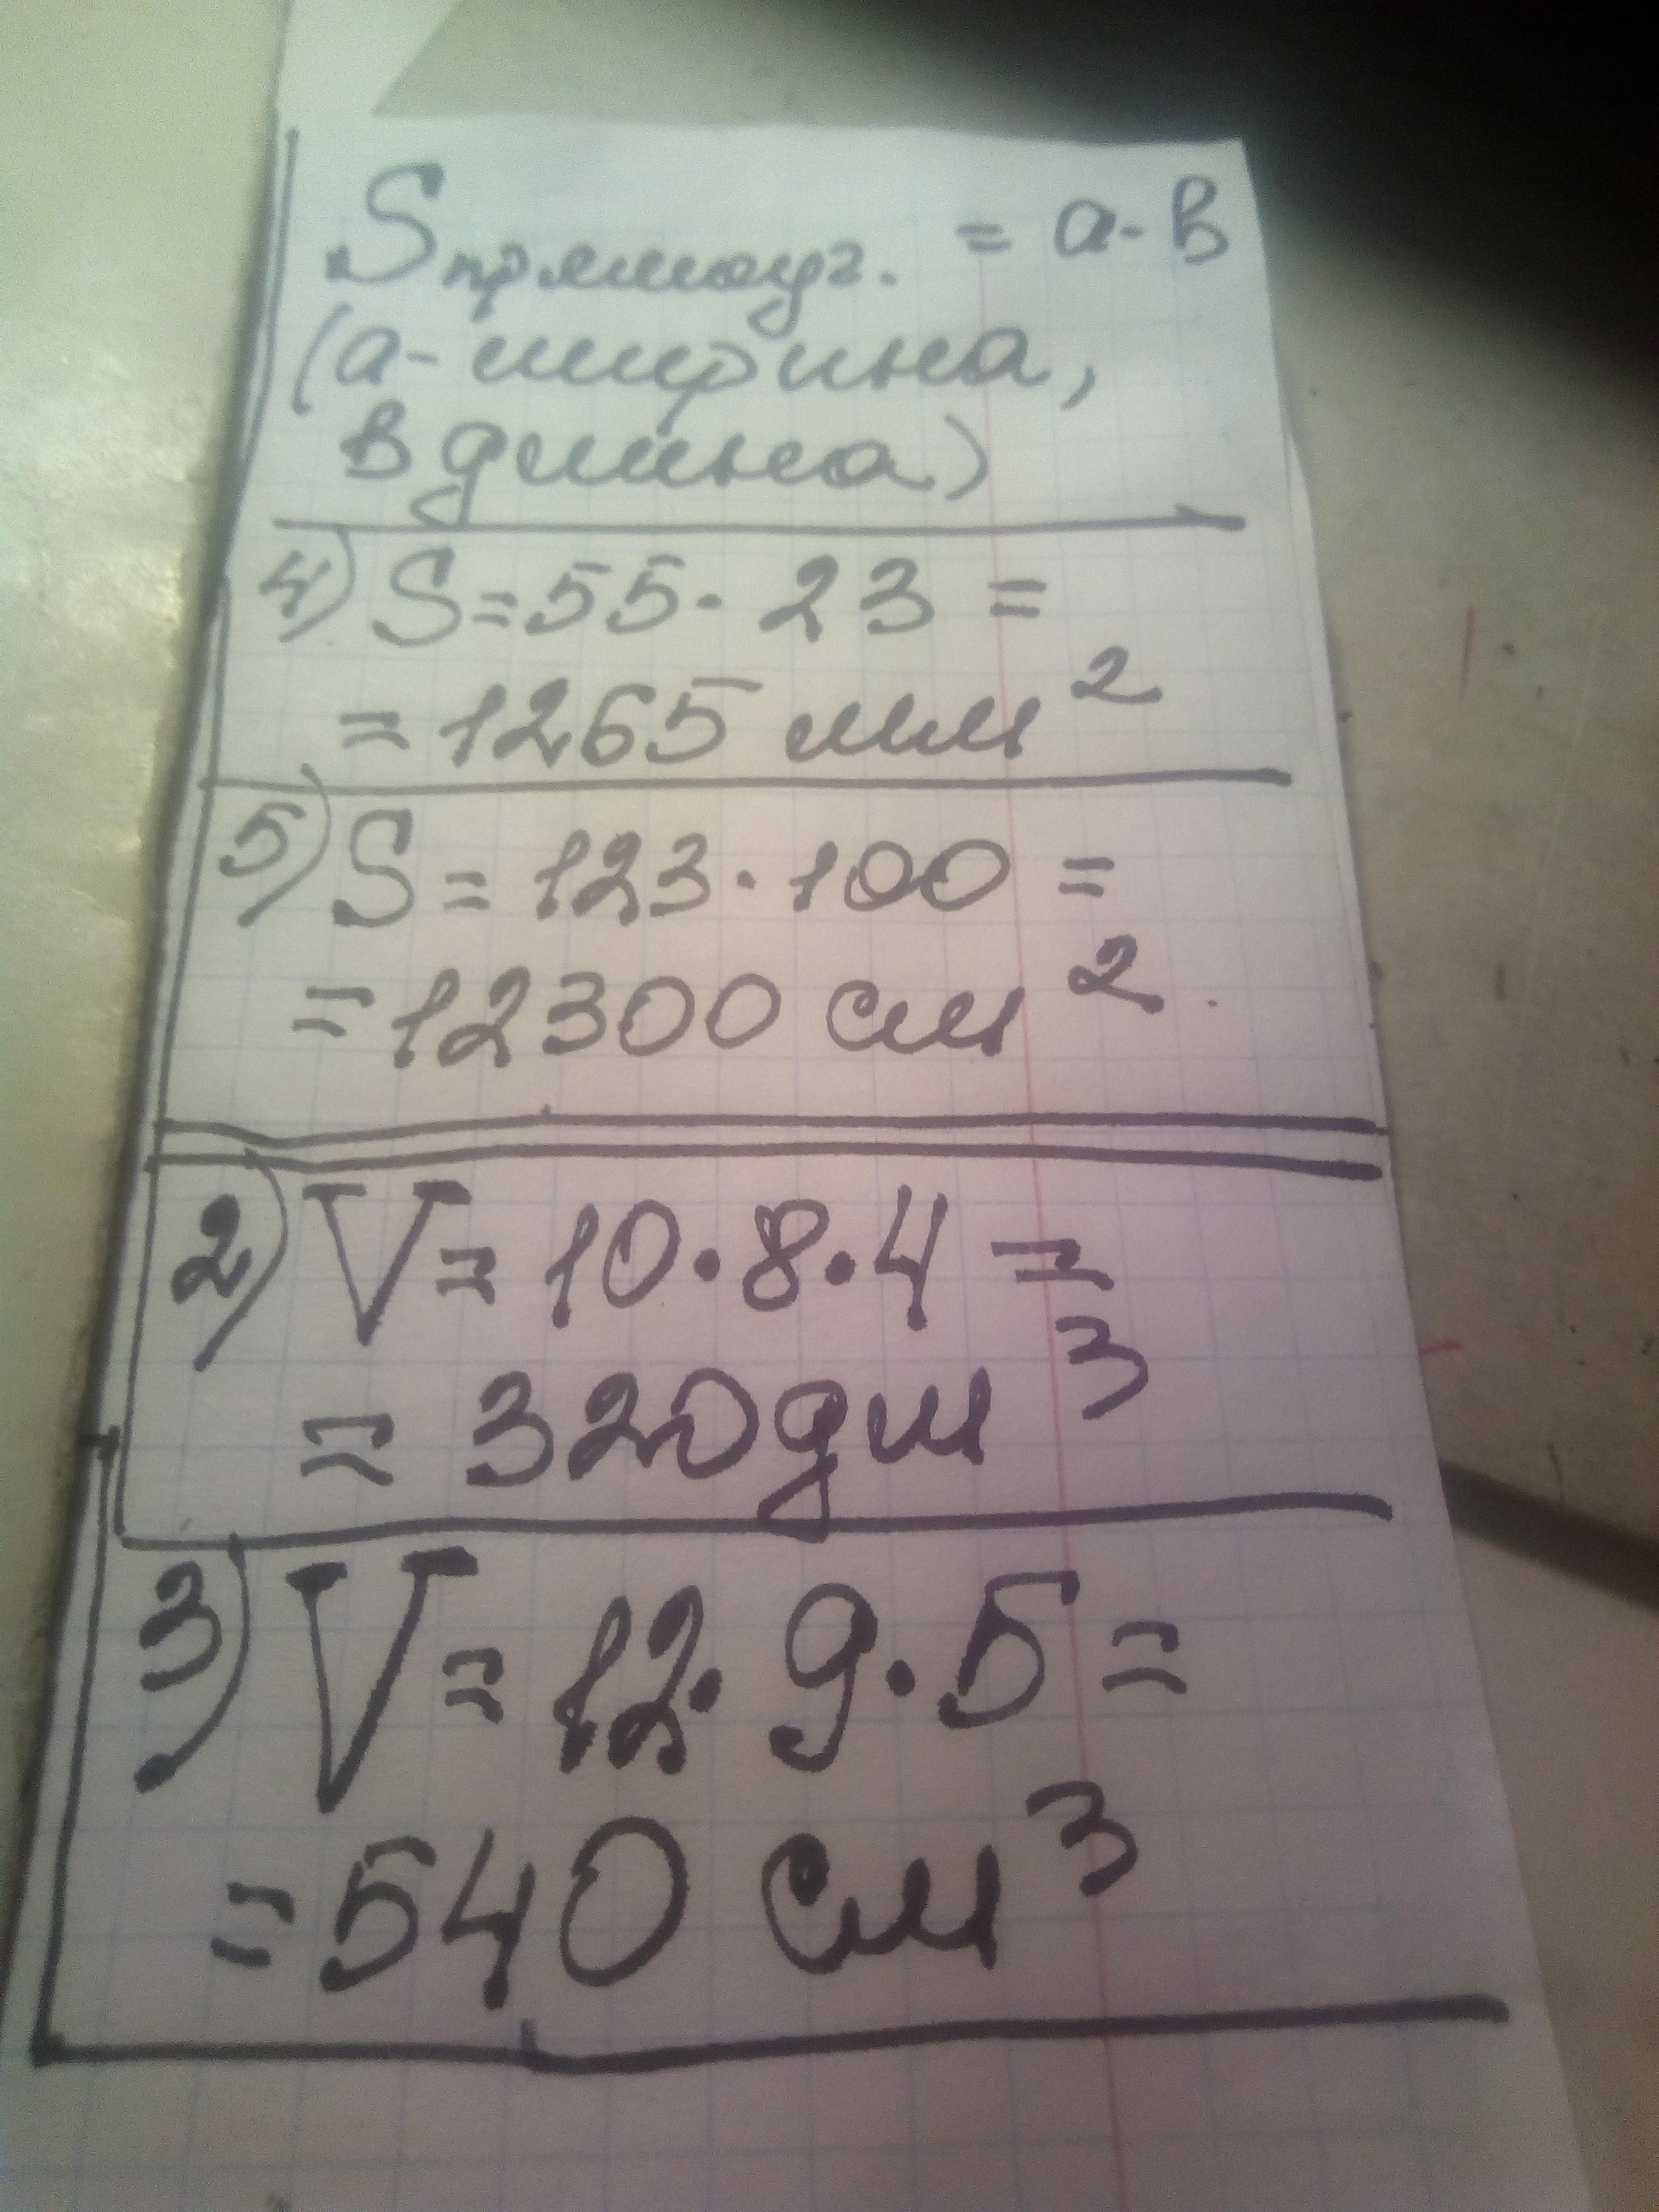 Sпрямоуг. = а·в
(а-ширина,
в длина)
4) S=55·23=
=1265 мм²
5) S=123·100=
=12300 см².
2) V=10·8·4=
=320дм³
3) V=12·9·5=
=540 см³